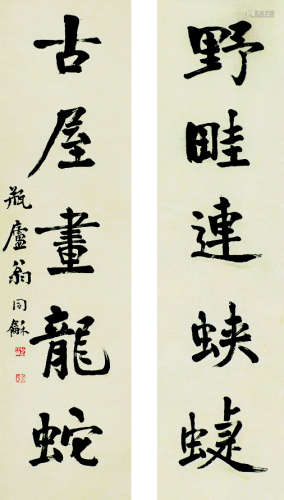 野畦連蛺蜨
古屋畫龍蛇
瓶廬翁同龢